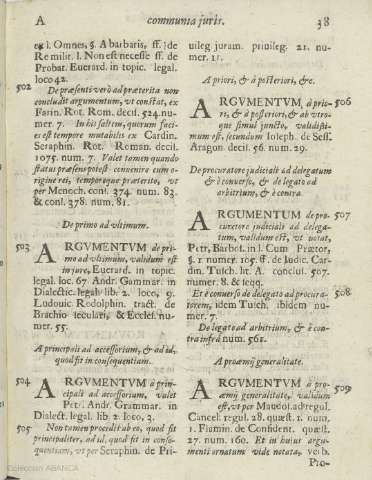 A communia juris. 38
ex l. Omnes, §. A barbaris, ff. de
Re milit. l. Non est necesse ff. de
Probat. Euerard. in topic. legal.
loco 42.
502 De præsenti verò ad præterita non
concludit argumentum, vt constat, ex
Farin. Rot. Rom. decis. 524. nu-
mer. 7. In his saltem, quorum faci-
es est tempore mutabilis ex Cardin.
Seraphin. Rot. Roman. decis.
1075. num. 7. Valet tamen quando
status præsens potest convenire cum o-
rigine rei, temporeque præterito, vt
per Menoch. consl. 374. num. 83.
& consl. 378. num. 81.
De primo ad vltimum.
503 ARGVMENTVM de pri-
mo ad vltimum, validum est
in jure, Euerard. in topic.
legal. loc. 67. Andr. Gammar. in
Dialectic. legal. lib. 2. loco, 9.
Ludouic. Rodolphin. tract. de
Brachio seculari, & Eccles. nu-
mer. 55.
A principali ad accessorium, & ad id,
quod sit in consequentiam.
504 ARGVMENTVM à prin-
cipali ad accessorium, valet
Petr. Andr. Grammar. in
Dialect. legal. lib. 2. loco, 2.
505 Non tamen procedit ab eo, quod sit
principaliter, ad id, quod sit in conse-
quentiam, vt per Seraphin. de Pri-
uileg. juram. privileg. 21. nu-
mer. 11.
A priori, & à posteriori, &c.
ARGVMENTVM, à prio- 506
ri, & à posteriori, & ab vtro-
que simul juncto, validissi-
mum est, secundum Ioseph. de Sess.
Aragon. decis. 56. num. 29.
De procuratore judiciali ad delegatum
& è converso, & de legato ad
arbitrium, & è contra.
ARGUMENTUM de pro- 507
curatore judiciali ad delega-
tum, validum est, vt notat,
Petr. Barbos. in l. Cum Prætor,
§. 1. numer. 105. ff. de Judic. Car-
din. Tusch. lit. A. conclus. 507.
numer. 8. & seqq.
Et è converso de delegato ad procura- 508
torem, idem Tusch. ibidem nu-
mer. 7.
De legato ad arbitrium, & è con-
tra infra num. 561.
A proæmij generalitate.
ARGVMENTVM à pro- 509
æmij generalitate, validum
est, vt per Mandos. ad regul.
Cancell. regul. 28. quæst. 2. num.
1. Flamin. de Confident. quæst.
27. num. 160. Et in huius argu-
menti ornatum vide notata, verb.
Pro-
Colección ABANCA